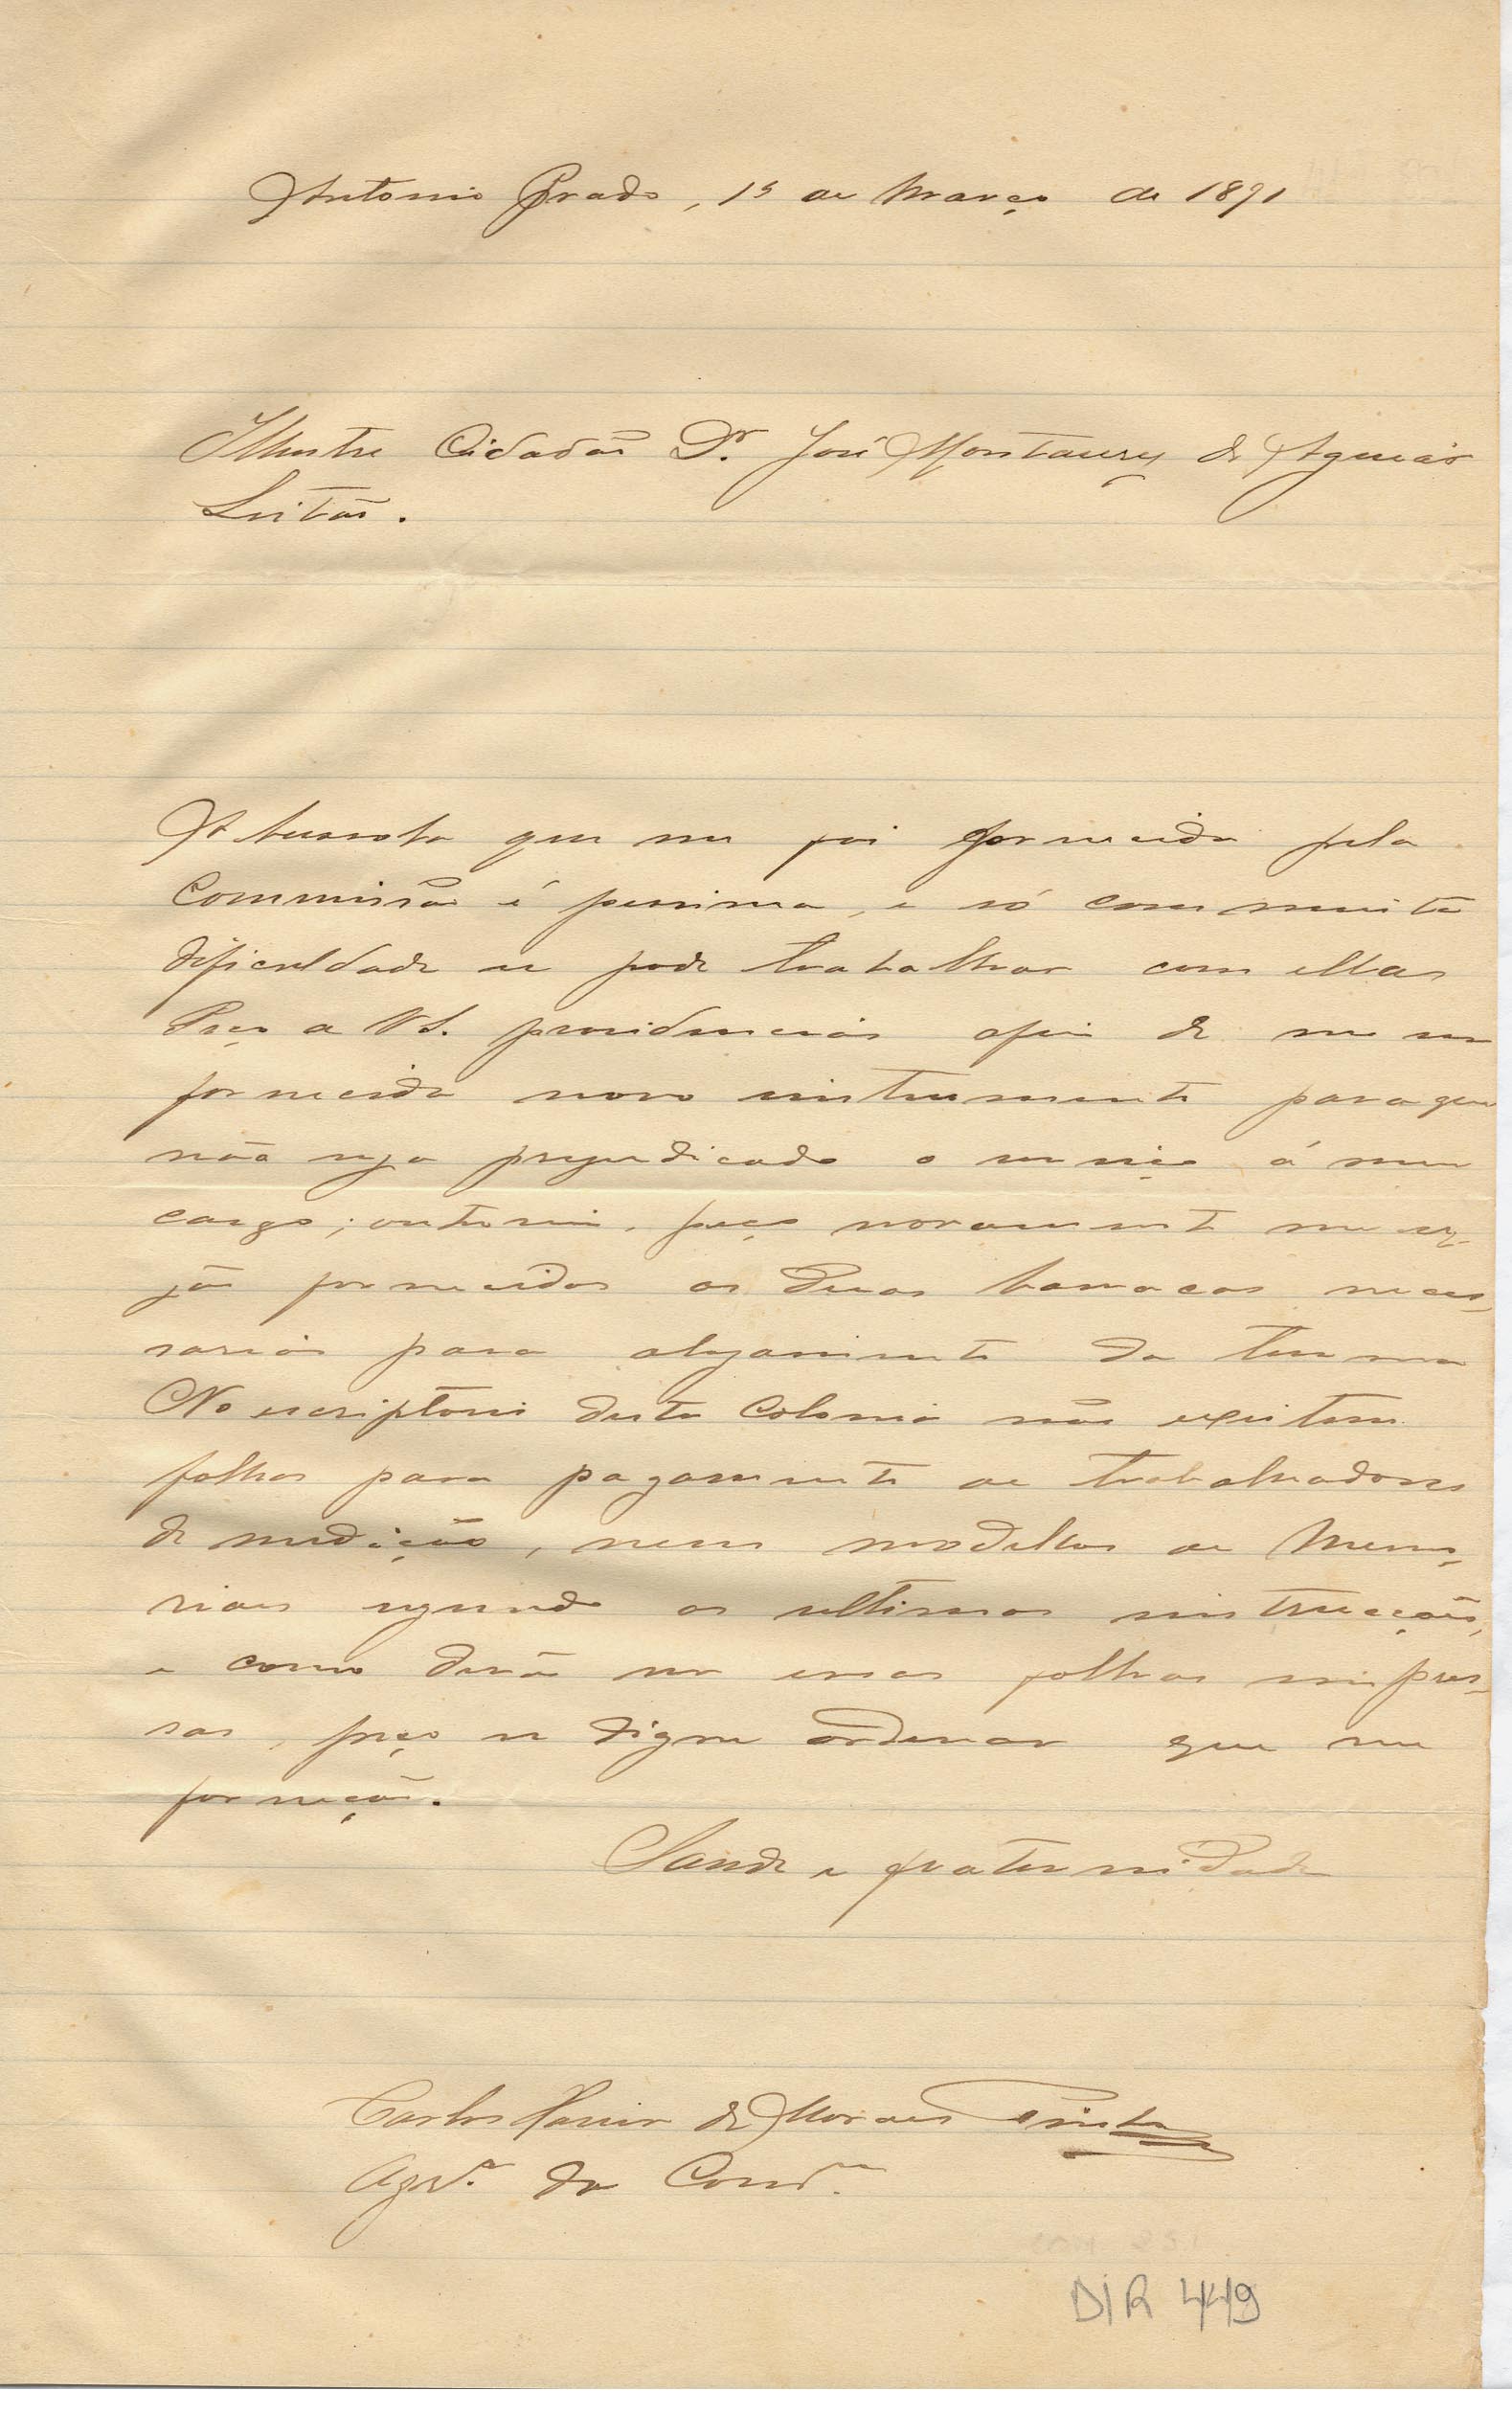 Antonio Prado, 15 de Março de 1891
Illustre Cidadão Dr. José Montaury de Aguiar
Leitão.
A bussola que me foi fornecida pela
Commissão é pessima, e só com muita
dificuldade se pode trabalhar com ella
Peço a V S. providencias afim de me ser
fornecido novo instrumento para que
não seja prejudicado o serviço á meu
cargo; outrosim, peço novamente me se-
jão fornecidas as duas barracas neces-
sarias para alojamento da turma
No escriptorio desta Colonia não existem
folhas para pagamento de trabalhadores
de medição, nem modellos de Memo-
riaes segundo as ultimas instrucções,
e como devão ser essas folhas impres-
sas, peço se digne ordenar que me
forneção.
Saude e fraternidade
Carlos Xavier de Moraes Pinto
Agr. da Com
DIR 449